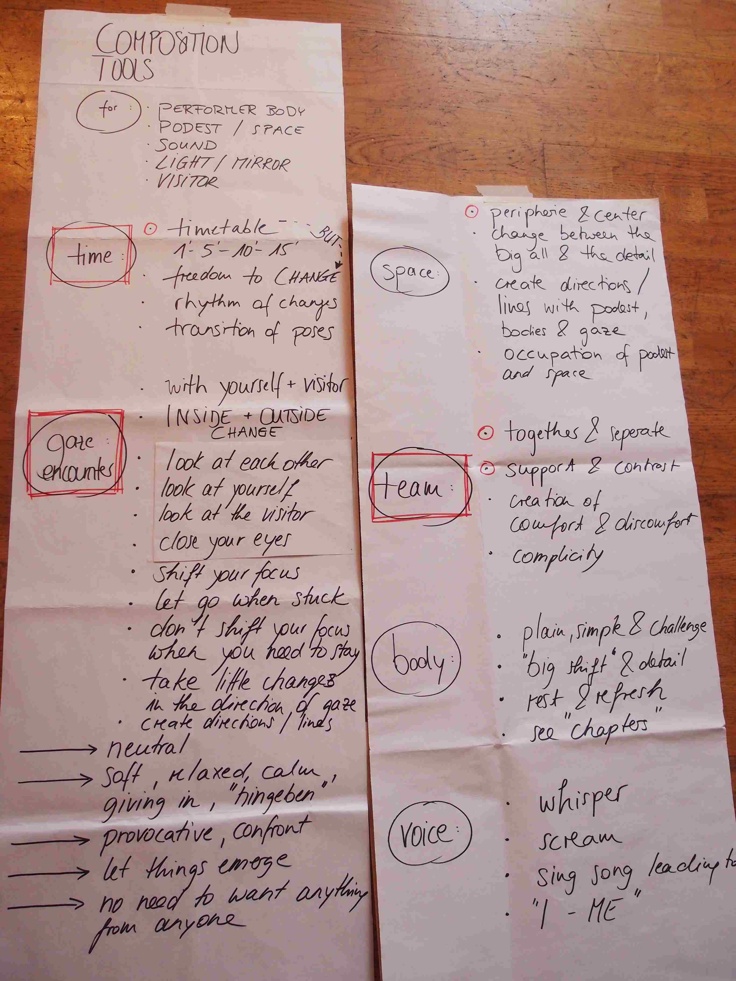 COMPOSITION
TOOLS
for:
· PERFORMER BODY
· PODEST / SPACE
· SOUND
· LIGHT / MIRROR
· VISITOR
time:
· timetable BUT
1'- 5'- 10'- 15'
· freedom to CHANGE
· rhythm of changes
· transition of poses
gaze:
encounter
· with yourself + visitor
· INSIDE + OUTSIDE
CHANGE
· look at each other
· look at yourself
· look at the visitor
· close your eyes
· shift your focus
· let go when stuck
· don't shift your focus
when you need to stay
· take little changes
in the direction of gaze
· create directions / lines
→ neutral
→ soft, relaxed, calm,
giving in, "hingeben"
→ provocative, confront
→ let things emerge
→ no need to want anything
from anyone
space:
· peripherie & center
· change between the
big all & the detail
· create directions /
lines with podest,
bodies & gaze
· occupation of podest
and space
team:
· together & seperate
· support & contrast
· creation of
comfort & discomfort
· complicity
body:
· plain, simple & challenge
· "big shift" & detail
· rest & refresh
· see "chapters"
voice:
· whisper
· scream
· sing song leading to
· "I - ME"